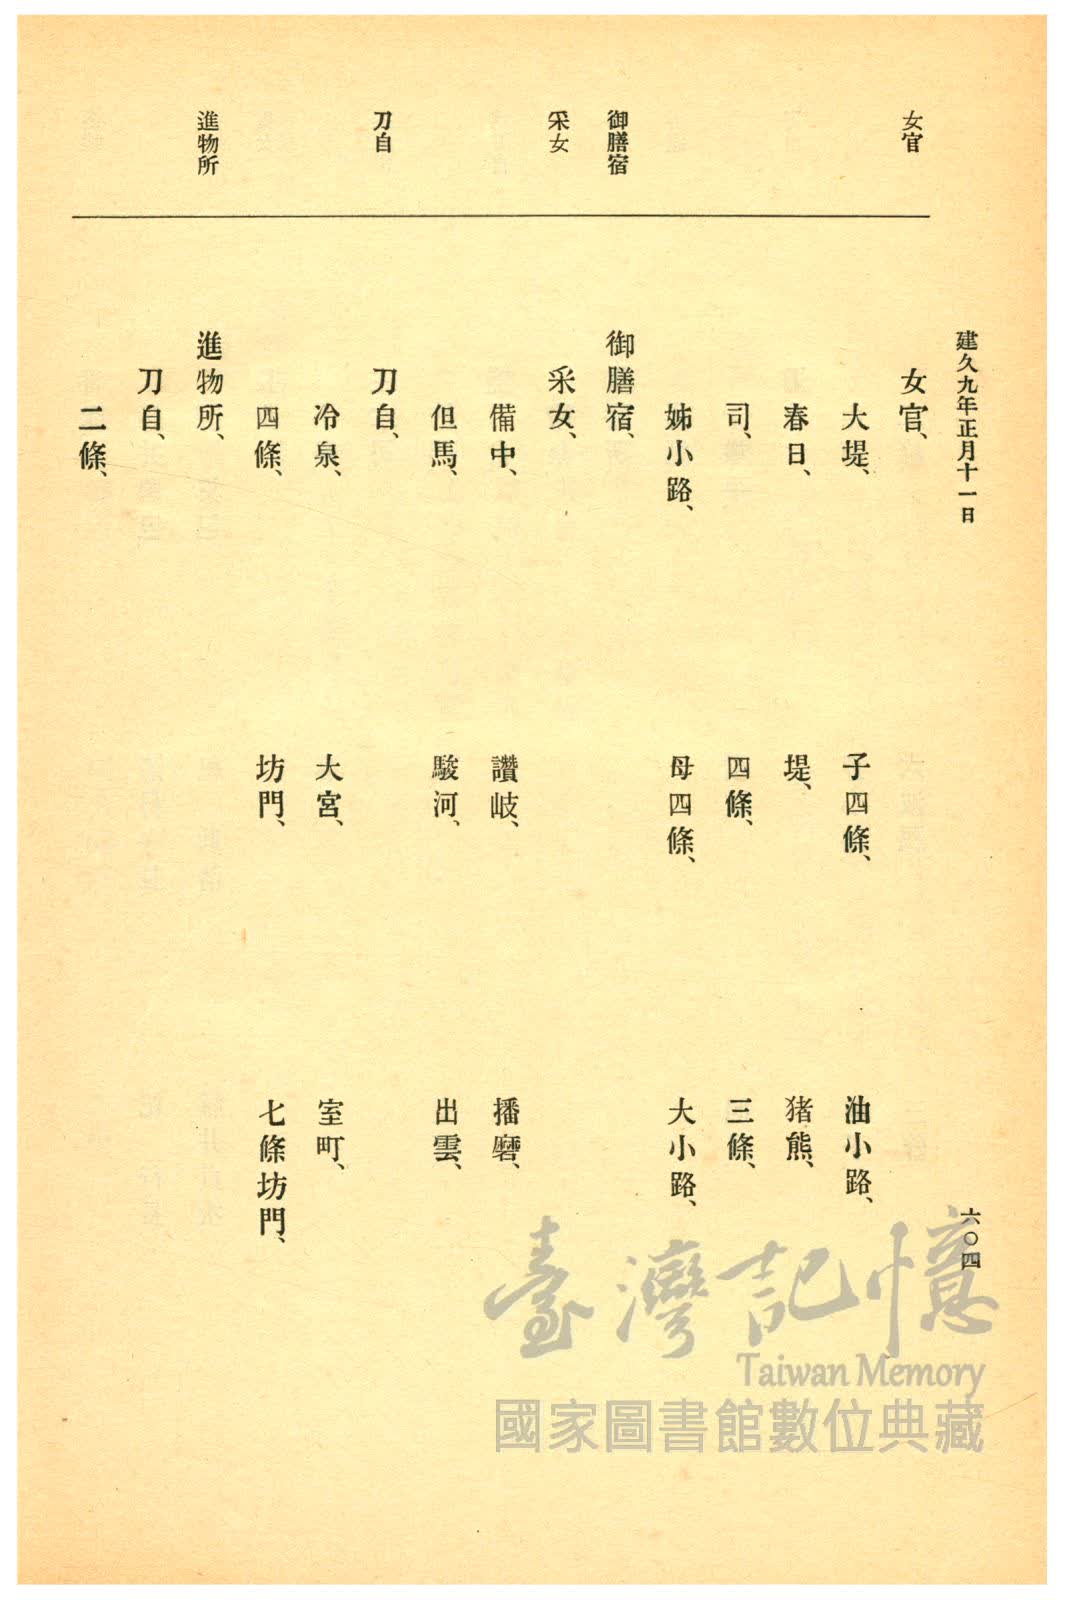 建久九年正月十一日
六〇四
女官
御膳宿
采女
刀自
進物所
女官、
大堤、　子四條、　油小路、
春日、　堤、　猪熊、
司、　四條、　三條、
姊小路、　母四條、　大小路、
御膳宿、
采女、
備中、　讚岐、　播磨、
但馬、　駿河、　出雲、
刀自、
冷泉、　大宮、　室町、
四條、　坊門、　七條坊門、
進物所、
刀自、
二條、
臺灣記憶
Taiwan Memory
國家圖書館數位典藏